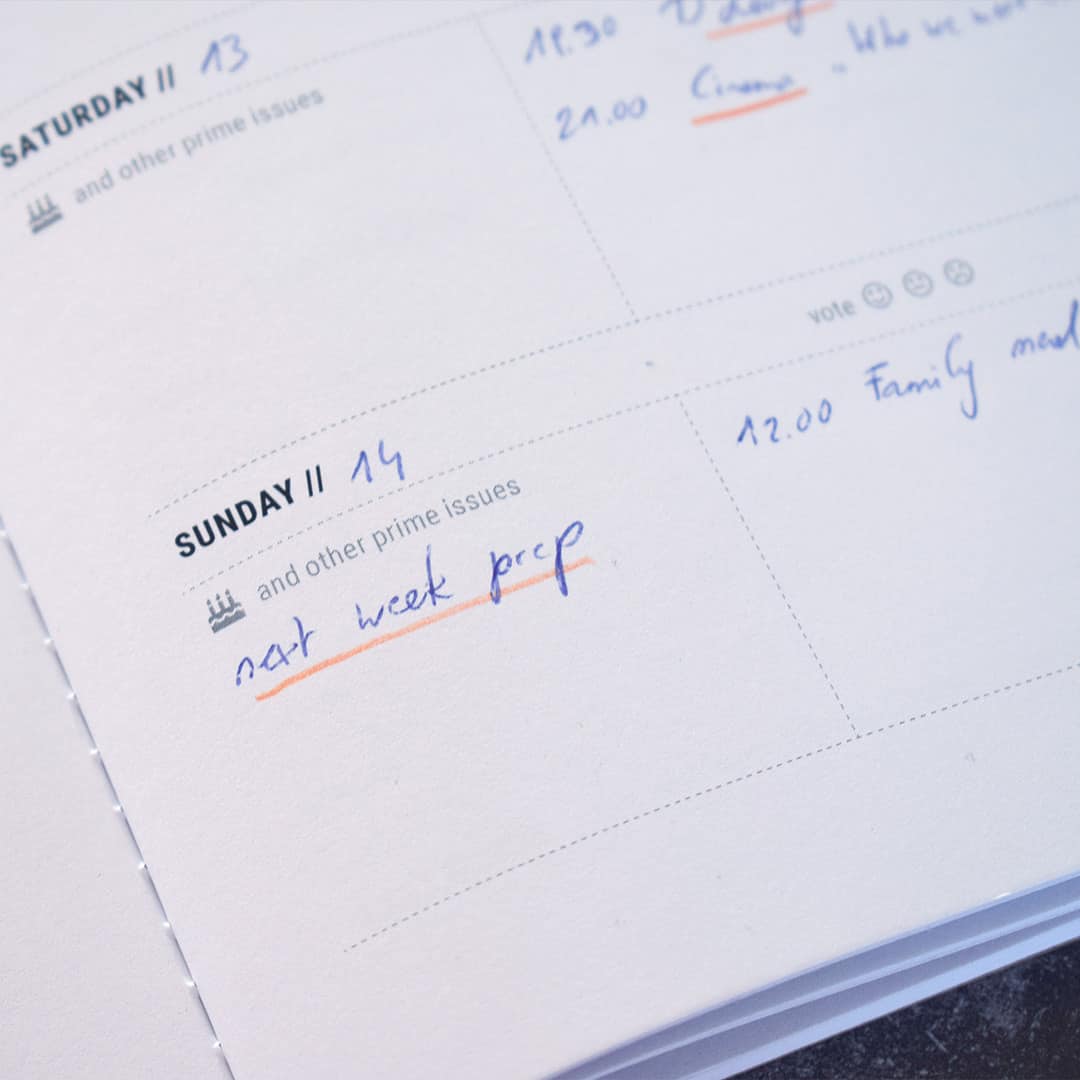 SATURDAY // 13
and other prime issues
19.30
21.00 Cinema "Who we
vote
SUNDAY // 14
and other prime issues
next week prep
12.00 Family meal